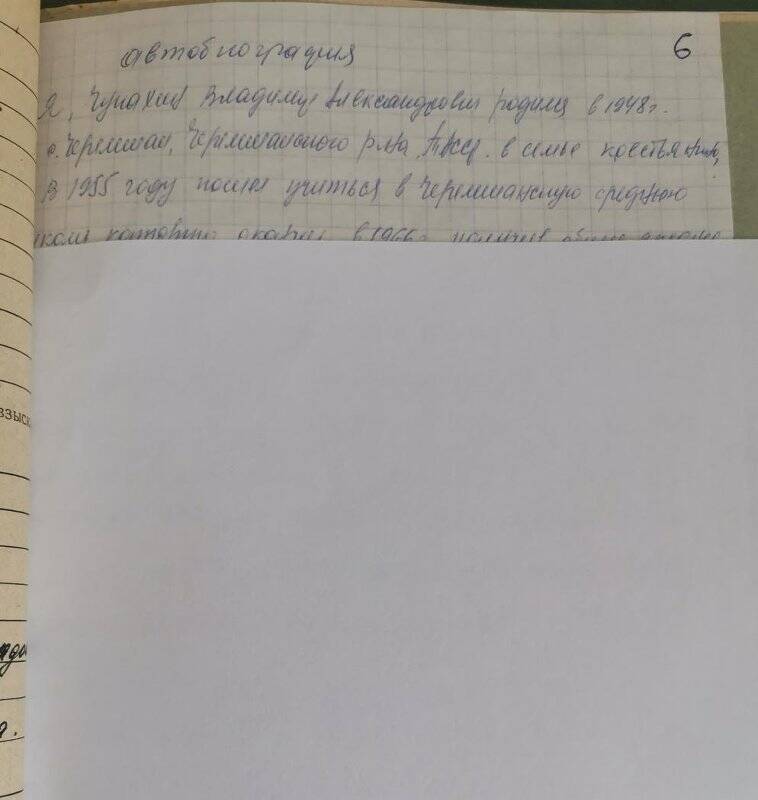 автобиография
6
Я, Чупахин Владимир Александрович родился в 1948 г.
с. Черемшан, Черемшанского р-на, ТАССР. в семье крестьянина,
В 1955 году пошел учиться в Черемшанскую среднюю
в 1966 г.
взыск